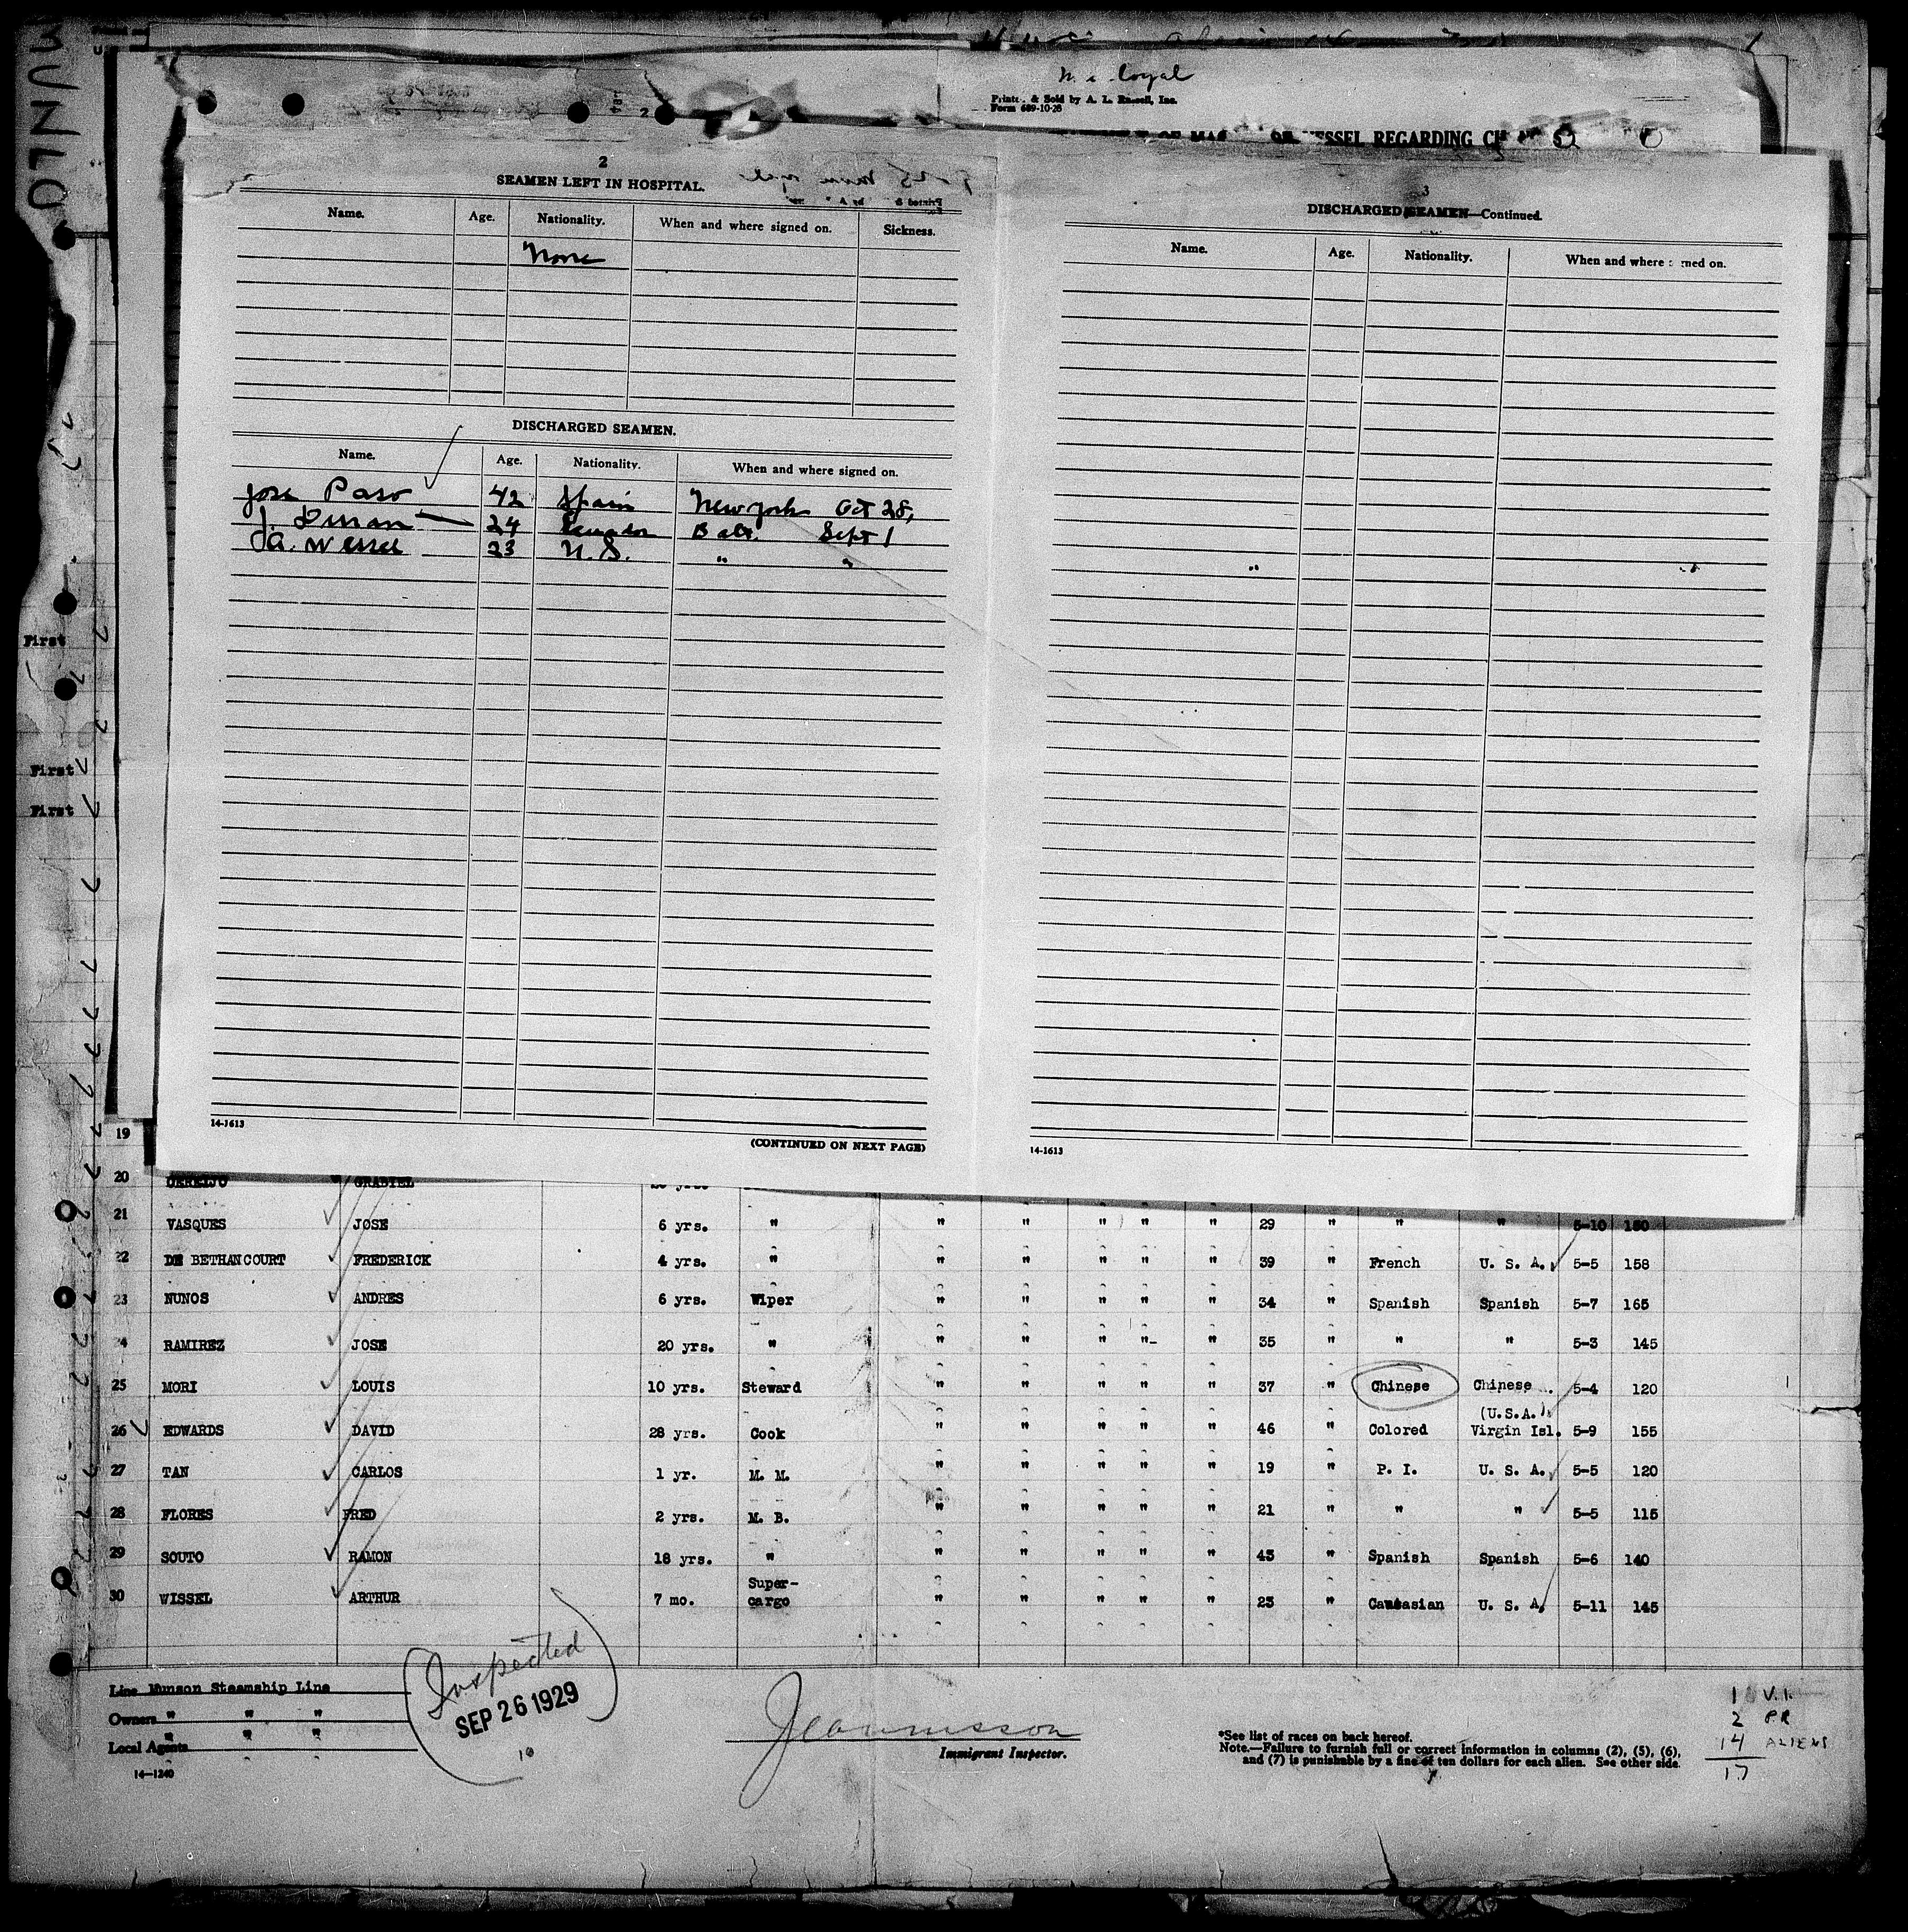 MUNLO
loyal
& Sold by A. L. Russell, Inc.
Form 689-10-28
VESSEL REGARDING
2
SEAMEN LEFT IN HOSPITAL.
Name. Age. Nationality. When and where signed on. Sickness.
None
DISCHARGED SEAMEN.
Name. Age. Nationality. When and where signed on.
Jose Paso 42 Spain New York Oct 28,
J. Duran 24 Ecuador Balt. Sept 1
A. Wessel 23 U. S. " "
14-1613
(CONTINUED ON NEXT PAGE)
3
DISCHARGED SEAMEN—Continued.
Name. Age. Nationality. When and where signed on.
14-1613
First
First
First
19
20 GRABIEL
21 VASQUES JOSE 6 yrs. " " " " " " 29 " " " 5-10 150
22 DE BETHANCOURT FREDERICK 4 yrs. " " " " " " 39 " French U. S. A. 5-5 158
23 NUNOS ANDRES 6 yrs. Wiper " " " " " 34 " Spanish Spanish 5-7 165
4 RAMIREZ JOSE 20 yrs. " " " " " " 35 " " " 5-3 145
25 MORI LOUIS 10 yrs. Steward " " " " " 37 " Chinese Chinese 5-4 120
26 EDWARDS DAVID 28 yrs. Cook " " " " " 46 " Colored (U.S.A.) Virgin Isl. 5-9 155
27 TAN CARLOS 1 yr. M. M. " " " " " 19 " P. I. U. S. A. 5-5 120
28 FLORES FRED 2 yrs. M. B. " " " " " 21 " " " 5-5 115
29 SOUTO RAMON 18 yrs. " " " " " " 43 " Spanish Spanish 5-6 140
30 WISSEL ARTHUR 7 mo. Super-cargo " " " " " 23 " Caucasian U. S. A. 5-11 145
Line Munson Steamship Line
Owners " " "
Local Agents " " "
14-1240
Inspected
SEP 26 1929
Immigrant Inspector.
*See list of races on back hereof.
Note.—Failure to furnish full or correct information in columns (2), (5), (6),
and (7) is punishable by a fine of ten dollars for each alien. See other side.
1 V.I.
2 P.R
14 ALIENS
17